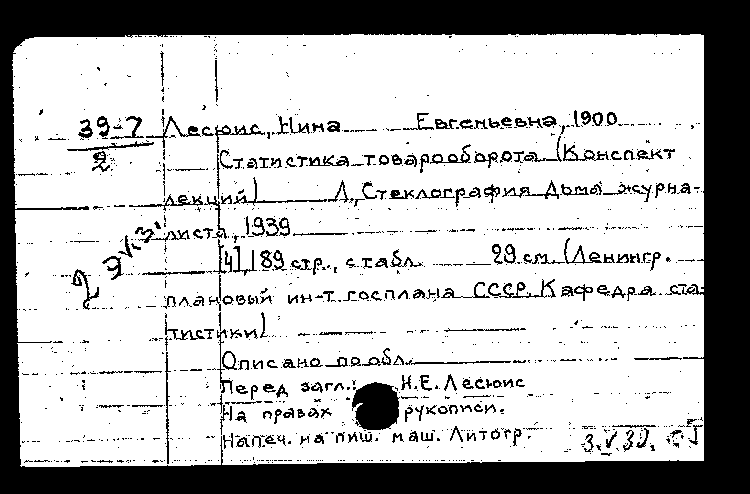 39-7 Лесюис, Нина Евгеньевна, 1900
2
Статистика товарооборота (Конспект
лекций) Л., Стеклография Дома журна-
листа, 1939
[4], 189 стр., с табл. 29 см. (Ленингр.
плановый ин-т госплана СССР. Кафедра ста-
тистики)
Описано по обл.
Перед загл.: Н.Е. Лесюис
На правах рукописи.
Напеч. на пиш. маш. Литогр.